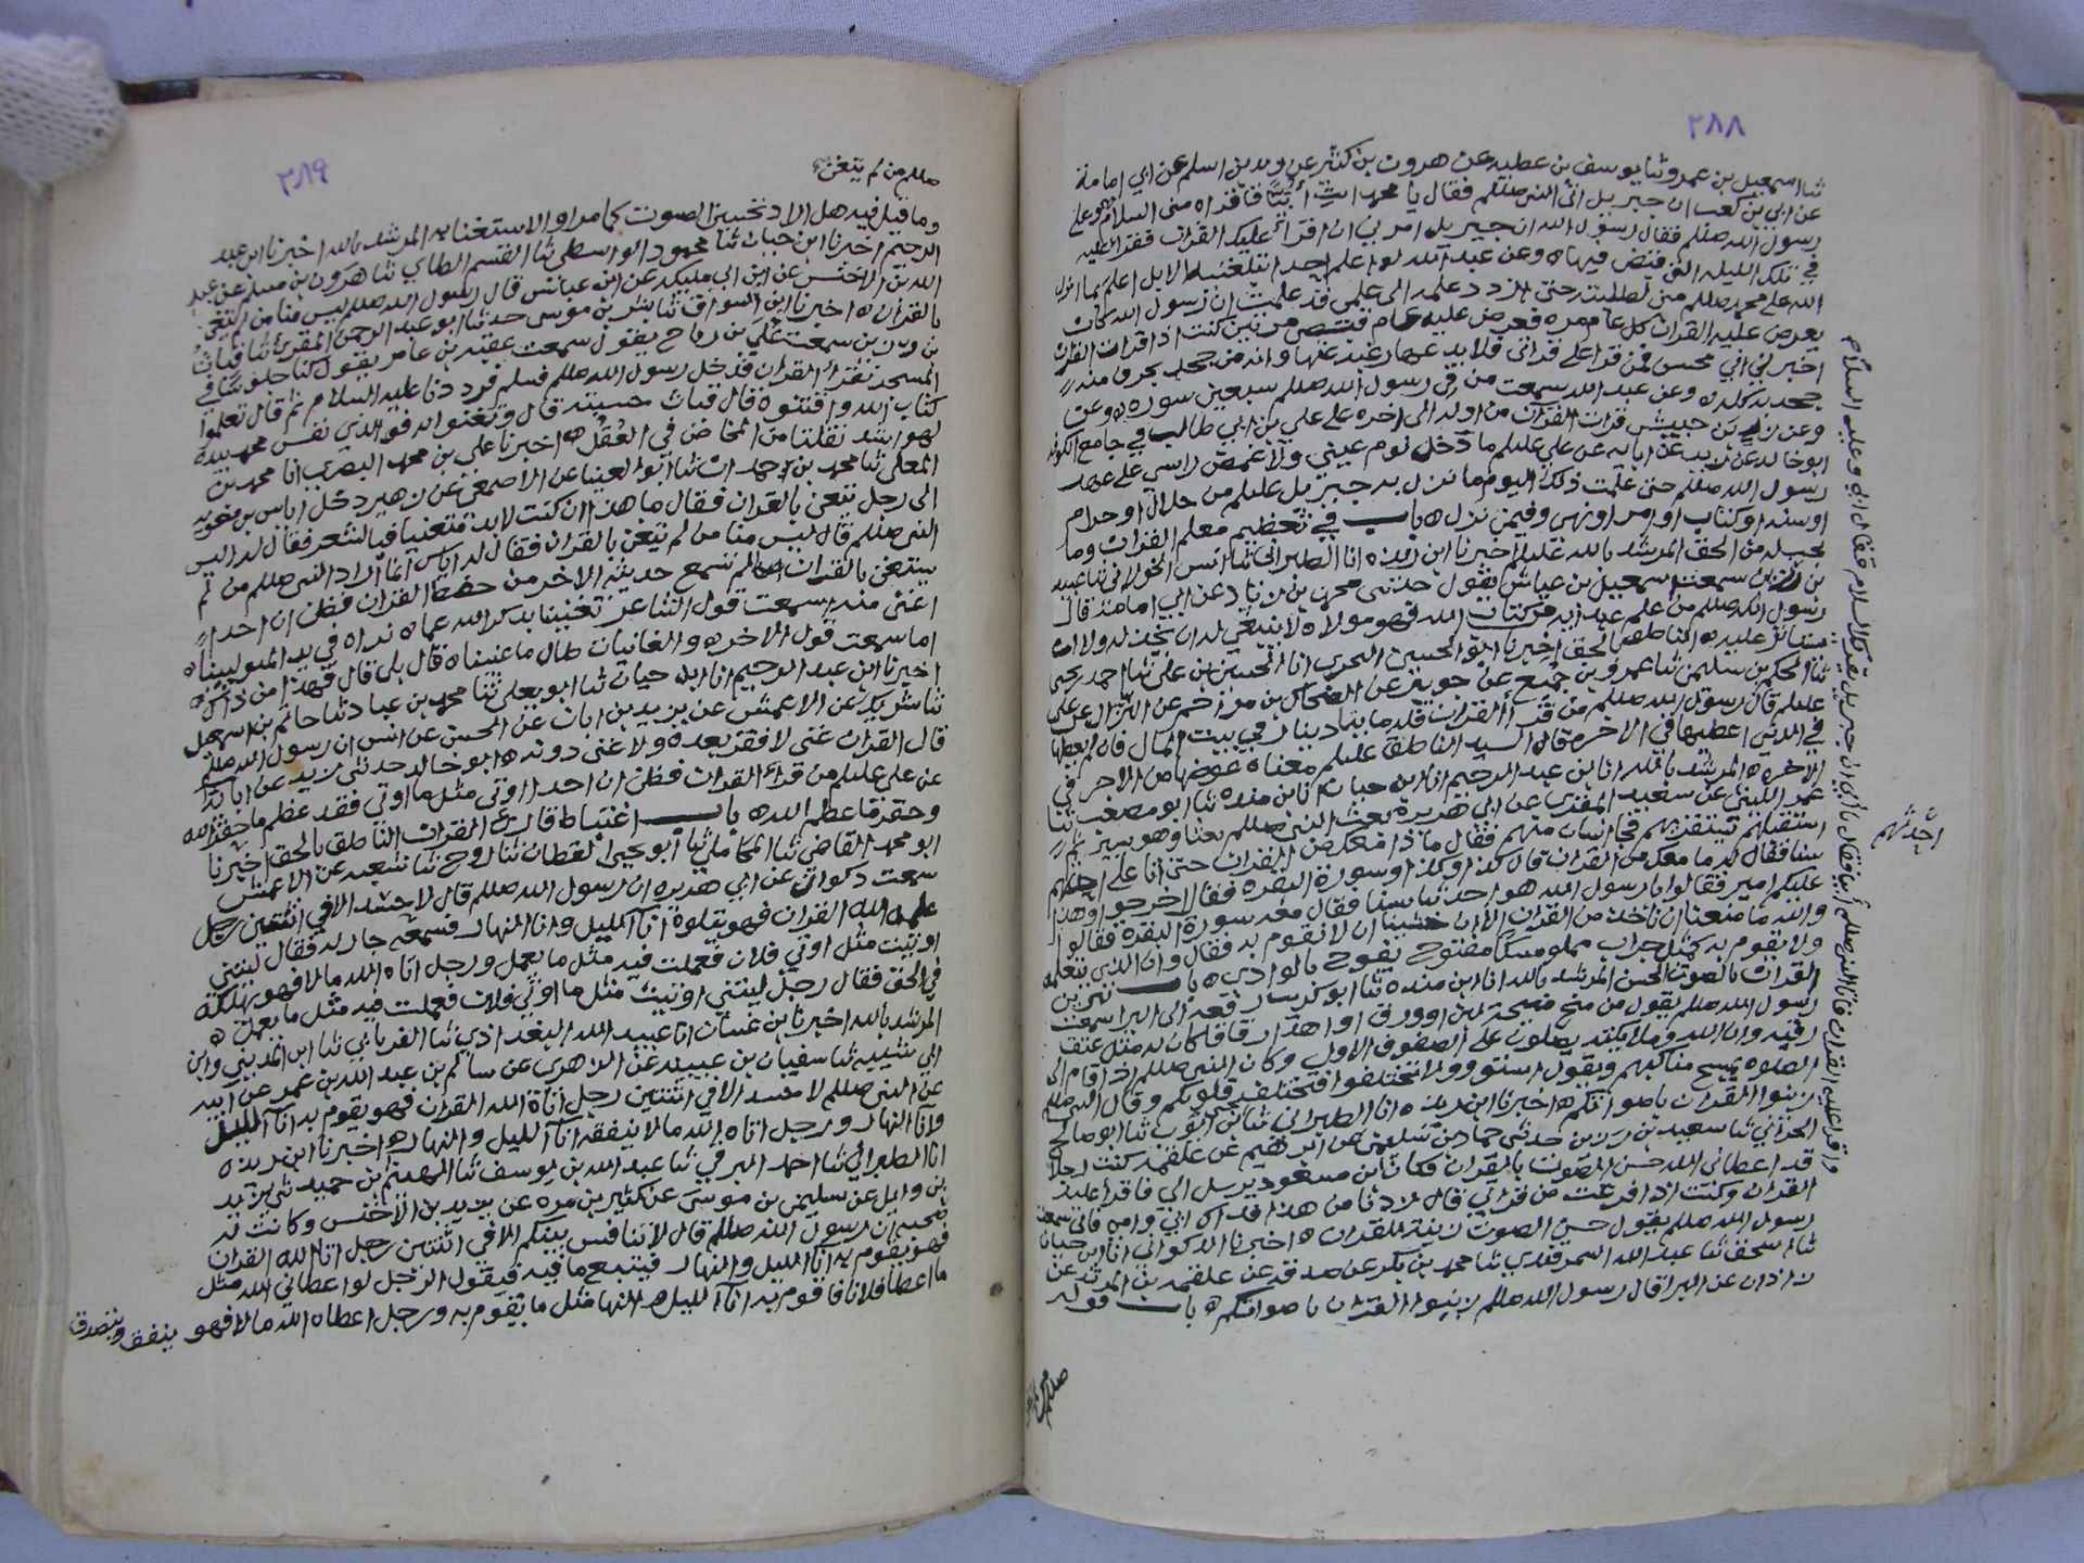 ٢٨٨
ثنا اسمعيل بن عمرو ثنا يوسف بن عطيه عن هرون بن كثير عن زيد بن اسلم عن ابي امامة
عن ابي بن كعب ان جبريل اتى النبي صللم فقال يا محمد ائت أبيّاً فاقراه منى السلام
رسول الله صللم فقال رسول الله ان جبريل امرني ان اقرأ عليك القران فقرا عليه
في تلك الليله التي قبض فيها ه وعن عبد الله لو اعلم احدا تبلغنيه الابل اعلم بما انزل
الله على محمد صللم منى لطلبته حتى ازداد علمه الى علمي قد علمت ان رسول الله كان
يعرض عليه القران كل عام مره فعرض عليه عام قبض مرتين كنت اذا قرات القران
اخبرني اني محسن فمن قرا على قراتي فلا يدعنها رغبه عنها وانه من جحد بحرف منه
جحد به كله ه وعن عبد الله سمعت من في رسول الله صللم سبعين سوره ه وعن
وعن زر بن حبيش قرات القران من اوله الى اخره على علي بن ابي طالب في جامع الكوفه
ابو خالد عن زيد عن ابايه عن علي عليلم ما دخل نوم عيني ولا غمض راسي على عهد
رسول الله صللم حتى علمت ذلك اليوم ما نزل به جبريل عليلم من حلال او حرام
او سنه او كتاب او امر او نهي وفيمن نزل ه باب في تعظيم معلم القران وما
يجب له من الحق المرشد بالله عليلم اخبرنا ابن ريذه انا الطبراني ثنا انس الخولاني ثنا عبيد
بن رزين سمعت اسمعيل بن عياش يقول حدثني محمد بن زياد عن ابي امامه قال
رسول الله صللم من علم عبدا ايه من كتاب الله فهو مولاه لا ينبغي له ان يخذله ولا
يستاثر عليه ه الناطق بالحق اخبرنا ابو الحسين البحري انا الحسين بن علي ثنا احمد بن يحيى
ثنا الحكم بن سليمن ثنا عمرو بن جميع عن جويبر عن الضحاك بن مزاحم عن النزال عن علي
عليلم قال رسول الله صللم من قرأ القران فله مايتا دينار في بيت المال فان لم يعطها
في الدنيا اعطيها في الاخره قال السيد الناطق عليلم معناه عوضها من الاجر في
الاخره ه المرشد بالله انا بن عبد الرحيم انا ابن حيان انا بن منده ثنا ابو مصعب ثنا
عمر الليثي عن سعيد المقبري عن ابي هريره بعث النبي صللم بعثا وهو يسير
استقبلهم يستقريهم فجا انسان منهم فقال ماذا معك من القران حتى اتا على احدثهم
سنا فقال له ما معك من القران قال كذا وكذا وسورة البقره فقال اخرجوا وهذا
عليكم امير فقالوا يا رسول الله هو احدثنا سنا فقال معه سورة البقرة فقالوا
والله ما منعنا ان ناخذ من القران الا ان خشينا ان لا نقوم به فقال وان الذي يتعلمه
ولا يقوم به كمثل جراب مملو مسكا مفتوح يفوح بالوادي ه باب تزيين
القران بالصوت الحسن المرشد بالله انا ابن منده ثنا ابو كريب رفعه الى البرا سمعت
رسول الله صللم يقول من منح منيحة لبن او ورق او اهدا زقاقا كان له مثل عتق
رقبه وان الله وملايكته يصلون على الصفوف الاول وكان النبي صللم اذا قام الى
الصلوه يمسح مناكبهم ويقول استووا ولا تختلفوا فتختلف قلوبكم وقال النبي صللم
زينوا القران باصواتكم ه اخبرنا ابن ريذه انا الطبراني ثنا يحيى بن ايوب ثنا ابو صالح
الحراني ثنا سعيد بن زربي حدثني حماد بن سليمن عن ابرهيم عن علقمه كنت رجلا
قد اعطاني الله حسن الصوت بالقران فكان ابن مسعود يرسل الي فاقرا عليه
القران وكنت اذا فرغت من قراتي قال زدنا من هذا فداك ابي وامي فاني سمعت
رسول الله صللم يقول حسن الصوت زينة للقران ه اخبرنا الذكواني انا ابن حيان
ثنا اسحق ثنا عبد الله السمرقندي ثنا محمد بن بكر عن صدقه عن علقمه بن المرثد عن
زاذان عن البرا قال رسول الله صللم زينوا القران باصواتكم ه باب قوله
احدثهم
٢٨٩
صللم من لم يتغن
وما قيل فيه هل اراد تحسين الصوت كما مر او الاستغنا به المرشد بالله اخبرنا ابن عبد
الرحيم اخبرنا ابن حيان ثنا محمود الواسطي ثنا القسم الطاي ثنا هرون بن مسلم عن عبيد
الله بن الاخنس عن ابن ابي مليكه عن ابن عباس قال رسول الله صللم ليس منا من لم يتغن
بالقران ه اخبرنا ابن السواق ثنا بشر بن موسى حدثنا ابو عبد الرحمن المقري ثنا قباث
بن رزين سمعت علي بن رباح يقول سمعت عقبه بن عامر يقول كنا جلوسا في
المسجد نقرأ القران فدخل رسول الله صللم فسلم فرددنا عليه السلام ثم قال تعلموا
كتاب الله واقتنوه قال قباث حسبته قال وتغنوا به فو الذي نفس محمد بيده
لهو اشد تفلتا من المخاض في العُقُل ه اخبرنا علي بن محمد البصري انا محمد بن
المعلى ثنا محمد بن احمد ان ثنا ابو العينا عن الاصمعي عن زهير دخل اياس بن معويه
الى رجل يتغنى بالقران فقال ما هذا ان كنت لا بد متغنيا فبالشعر فقال له اليس
النبي صللم قال ليس منا من لم يتغن بالقران فقال له اياس انما اراد النبي صللم من لم
يستغن بالقران الم تسمع حديثه الاخر من حفظ القران فظن ان احدا
اغنى منه اسمعت قول الشاعر تغنينا بذكر الله عما ه نراه في يد المتمولينا ه
اما سمعت قول الاخر ه والغانيات طال ما غنينا ه قال بلى قال فهذا من ذاك ه
اخبرنا ابن عبد الرحيم انا ابن حيان ثنا ابو يعلى ثنا محمد بن عباد ثنا حاتم بن اسمعيل
ثنا شريك عن الاعمش عن يزيد بن ابان عن الحسن عن انس ان رسول الله صللم
قال القران غنى لا فقر بعده ولا غنى دونه ه ابو خالد حدثني زيد عن ابايه
عن علي عليلم من قرأ القران فظن ان احدا اوتي مثل ما اوتي فقد عظم ما حقر الله
وحقر ما عظم الله ه باب اغتباط قاري القران الناطق بالحق اخبرنا
ابو محمد القاضي ثنا المحاملي ثنا أبو يحيى القطان ثنا روح ثنا شعبه عن الاعمش
سمعت ذكوان عن ابي هريره ان رسول الله صللم قال لا حسد الا في اثنتين رجل
علمه الله القران فهو يتلوه انا الليل وانا النهار فسمعه جار له فقال ليتني
اوتيت مثل اوتي فلان فعملت فيه مثل ما يعمل ورجل اتاه الله مالا فهو يهلكه
في الحق فقال رجل ليتني اوتيت مثل ما اوتي فلان فعملت فيه مثل ما يعمل ه
المرشد بالله اخبرنا بن غسان انا عبيد الله البغدادي ثنا الفريابي ثنا ابن المديني وابن
ابي شيبه ثنا سفيان بن عيينه عن الزهري عن سالم بن عبد الله بن عمر عن ابيه
عن النبي صللم لا حسد الا في اثنتين رجل اتاه الله القران فهو يقوم به انا الليل
وانا النهار ورجل اتاه الله مالا ينفقه انا الليل والنهار ه اخبرنا ابن ريذه
انا الطبراني ثنا احمد البرقي ثنا عبد الله بن يوسف ثنا الهيثم بن حميد ثنى زيد
بن واقد عن سليمن بن موسى عن كثير بن مره عن يزيد بن الاخنس وكانت له
صحبه ان رسول الله صللم قال لا تنافس بينكم الا في اثنتين رجل اتاه الله القران
فهو يقوم به انا الليل والنهار فيتبع ما فيه فيقول الرجل لو اعطاني الله مثل
ما اعطا فلانا فاقوم به انا الليل والنهار مثل ما يقوم به ورجل اعطاه الله مالا فهو ينفق ويتصدق